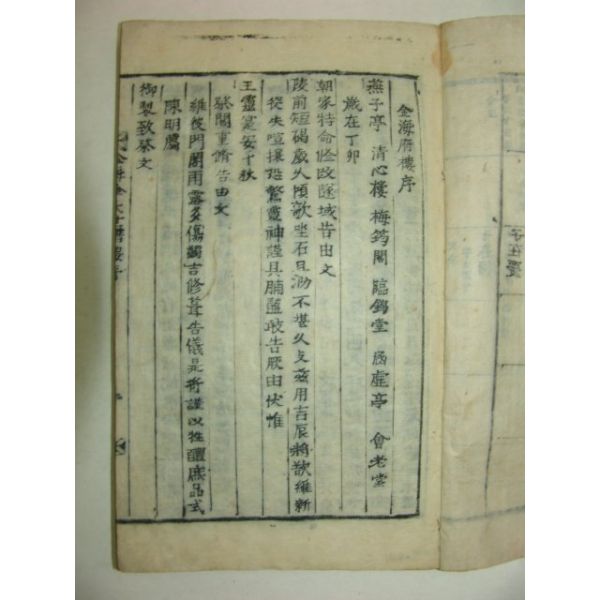 金海府樓序
燕子亭 清心樓 梅筠閣 臨錦堂 涵虛亭 會老堂
歲在丁卯
朝家特命修改陵域告由文
陵前短碣歲久傾欹坐石且泐不堪久支玆用吉辰將欲維新
從失喧攘恐驚靈神謹具脯醢敢告厥由伏惟
王靈寔安千秋
祭閣重修告由文
維後門閣雨露多傷蠲吉修葺告儀是將謹以牲醴庶品式
陳明薦
御製致祭文